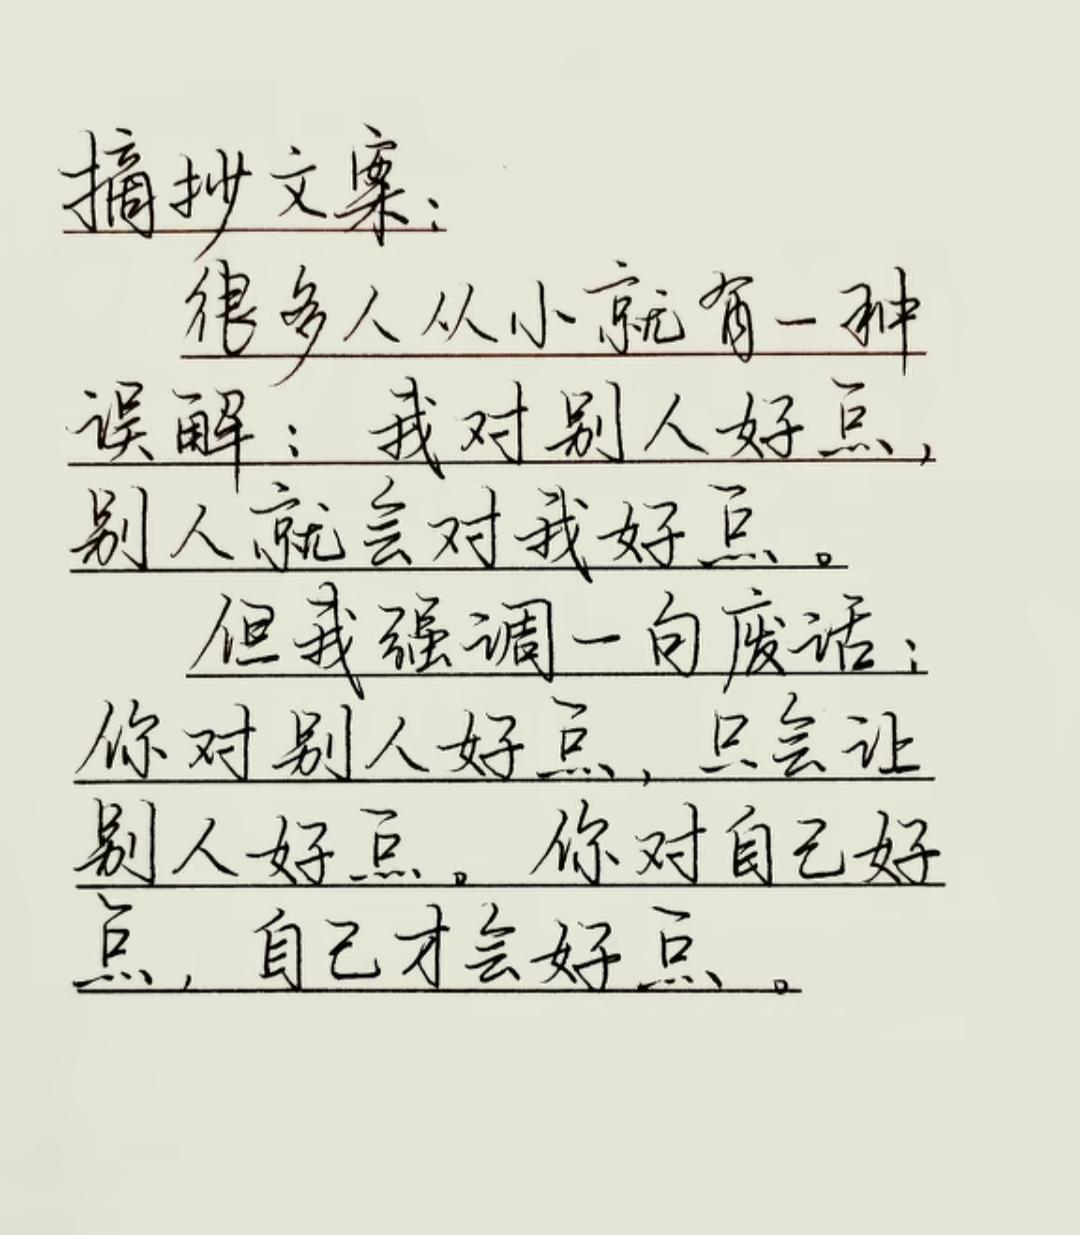 摘抄文案：
很多人从小就有一种
误解：我对别人好点，
别人就会对我好点。
但我强调一句废话：
你对别人好点，只会让
别人好点。你对自己好
点，自己才会好点。